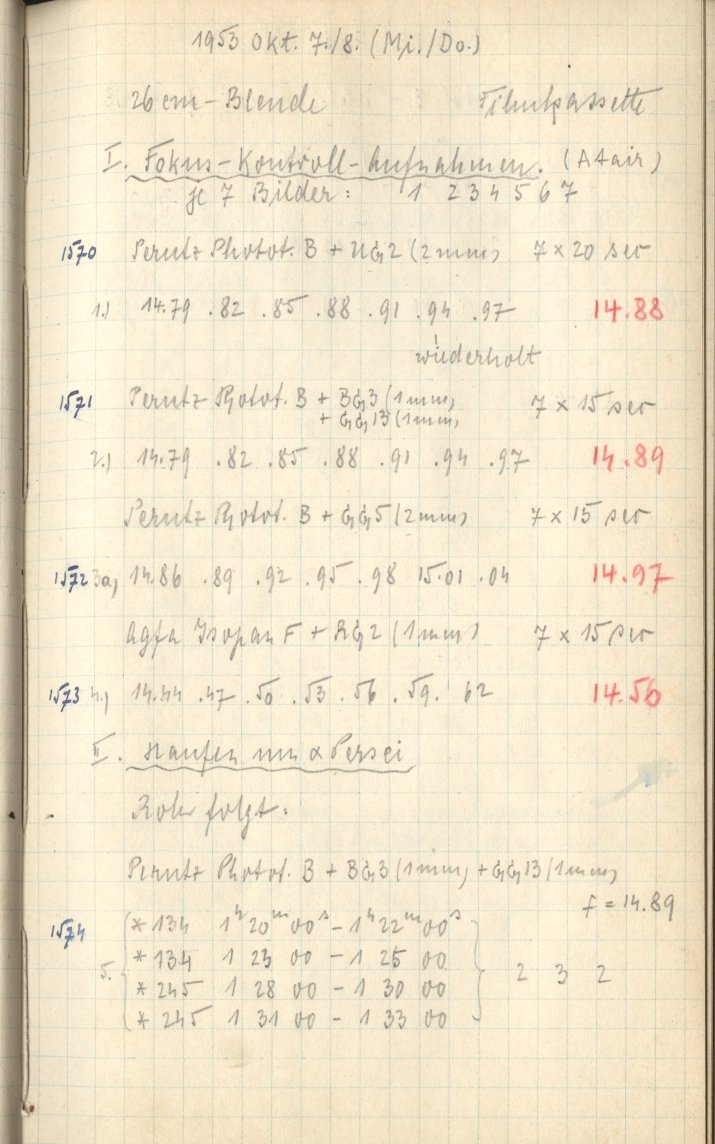 1953 Okt. 7./8. (Mi./Do.)
26 cm - Blende Filmkassette
I. Fokus-Kontroll-Aufnahmen. (Atair)
je 7 Bilder: 1 2 3 4 5 6 7
1570 Perutz Photot. B + UG2 (2mm) 7 × 20 sec
1.) 14.79 .82 .85 .88 .91 .94 .97 14.88
wiederholt
1571 Perutz Photot. B + BG3 (1mm) 7 × 15 sec
+ GG13 (1mm)
2.) 14.79 .82 .85 .88 .91 .94 .97 14.89
Perutz Photot. B + GG5 (2mm) 7 × 15 sec
1572 3a) 14.86 .89 .92 .95 .98 15.01 .04 14.97
Agfa Isopan F + RG2 (1mm) 7 × 15 sec
1573 4.) 14.44 .47 .50 .53 .56 .59 .62 14.56
II. Haufen um α Persei
Rohr folgt.
Perutz Photot. B + BG3 (1mm) + GG13 (1mm)
f = 14.89
1574 * 134 1h 20m 00s - 1h 22m 00s
* 134 1 23 00 - 1 25 00
5. * 245 1 28 00 - 1 30 00 2 3 2
* 245 1 31 00 - 1 33 00